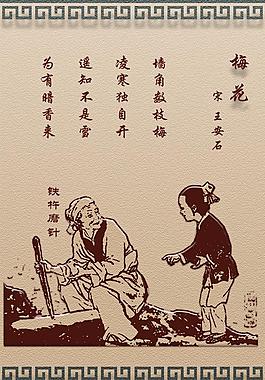 梅花
宋 王安石
墙角数枝梅
凌寒独自开
遥知不是雪
为有暗香来
铁杵磨针